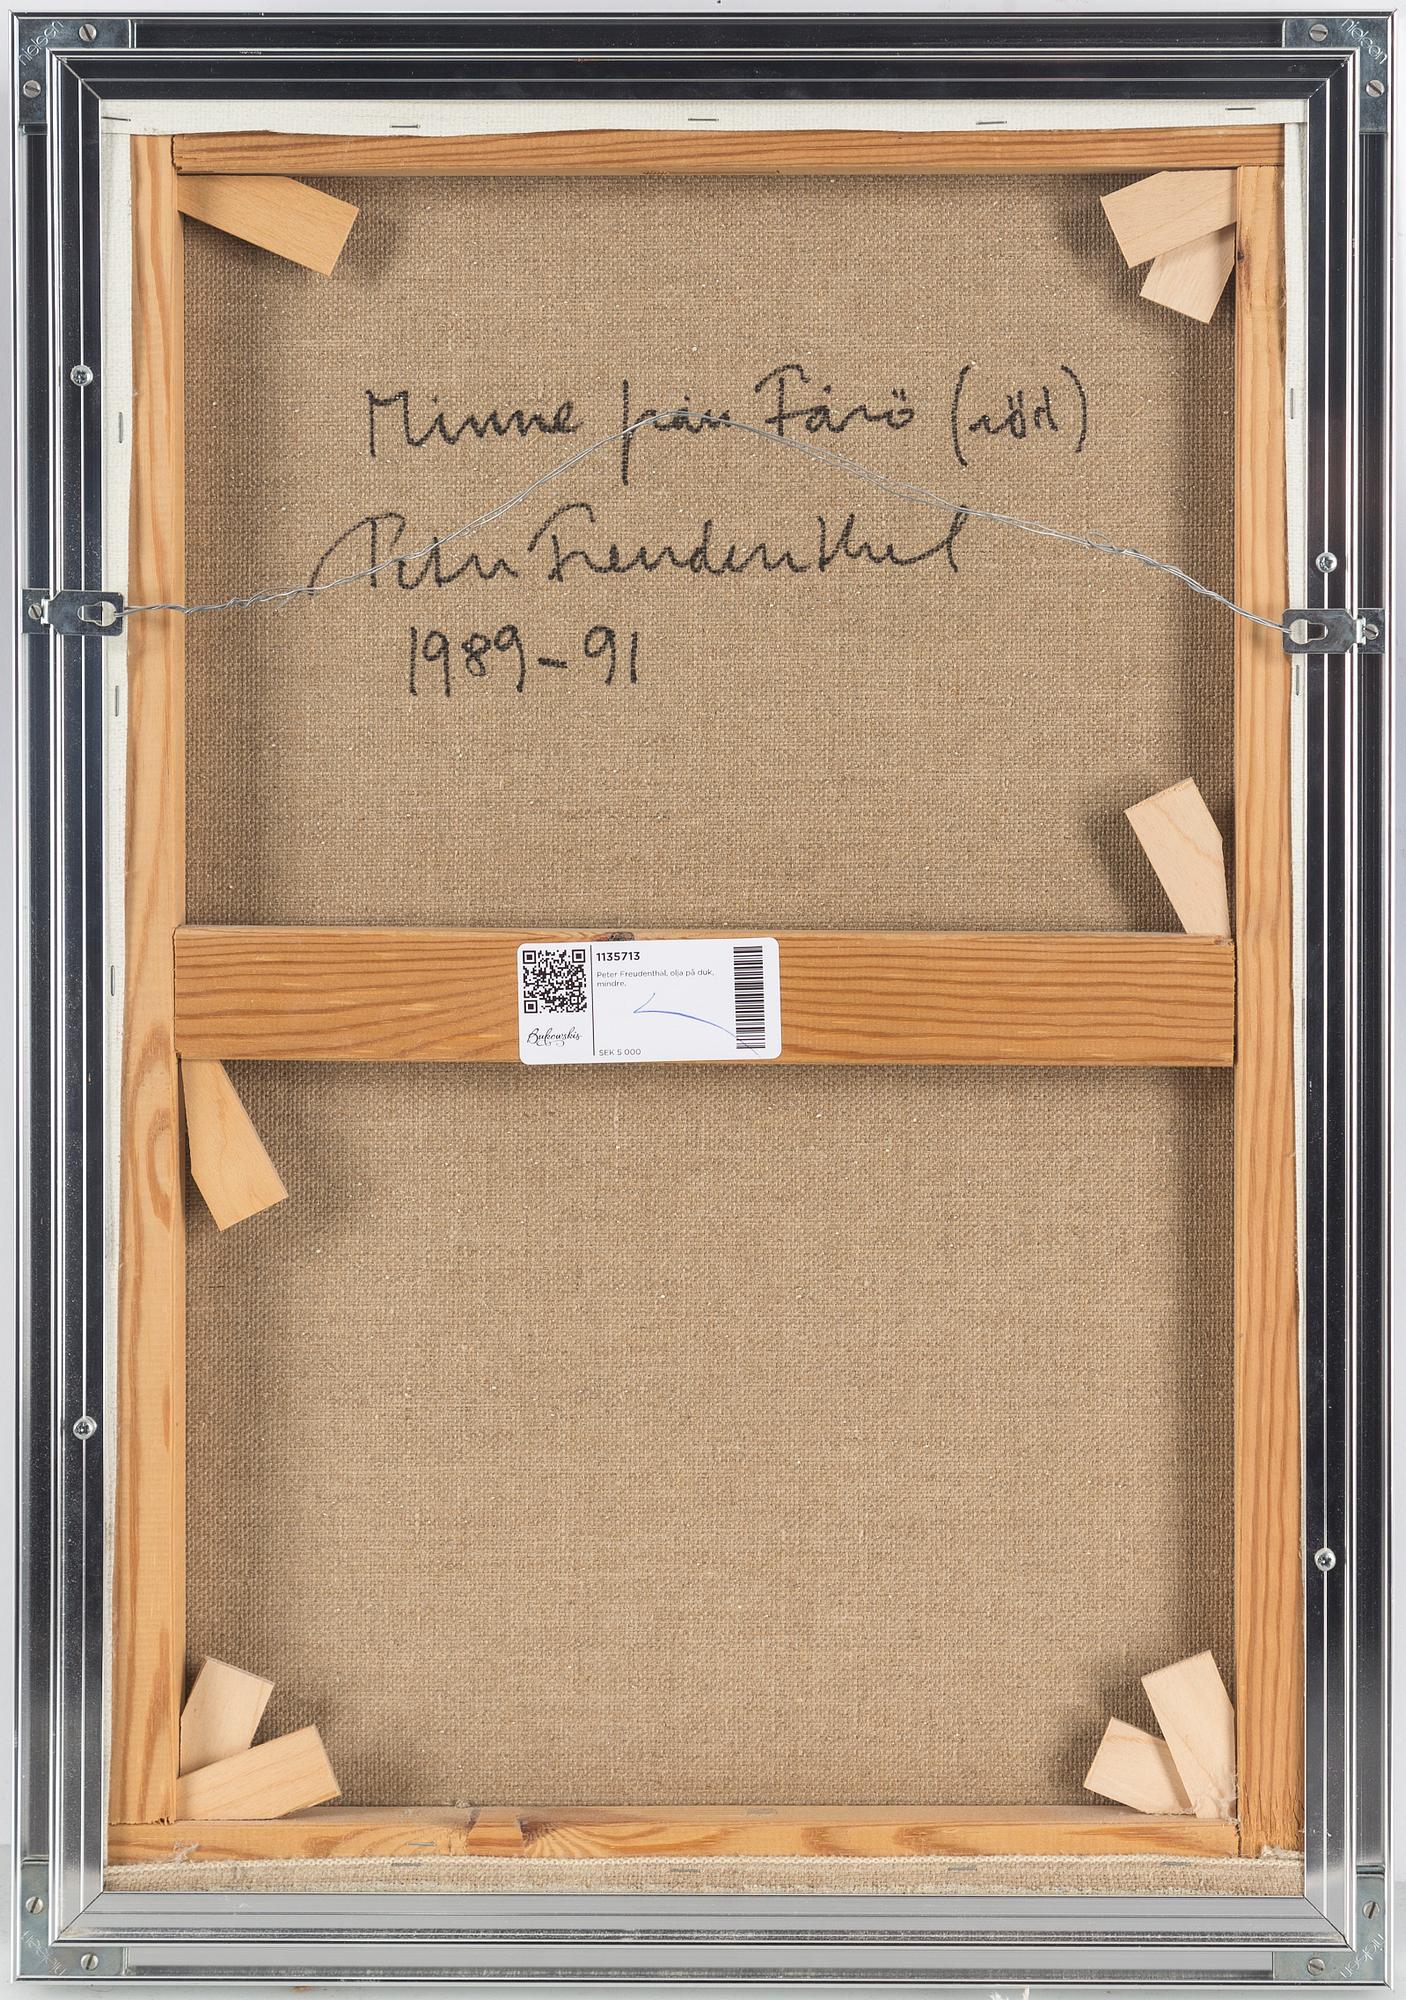 Minne från Fårö (röd)
Peter Freudenthal
1989-91
1135713
Peter Freudenthal, olja på duk,
mindre,
Bukowskis
SEK 5 000
nielsen
nielsen
nielsen
nielsen